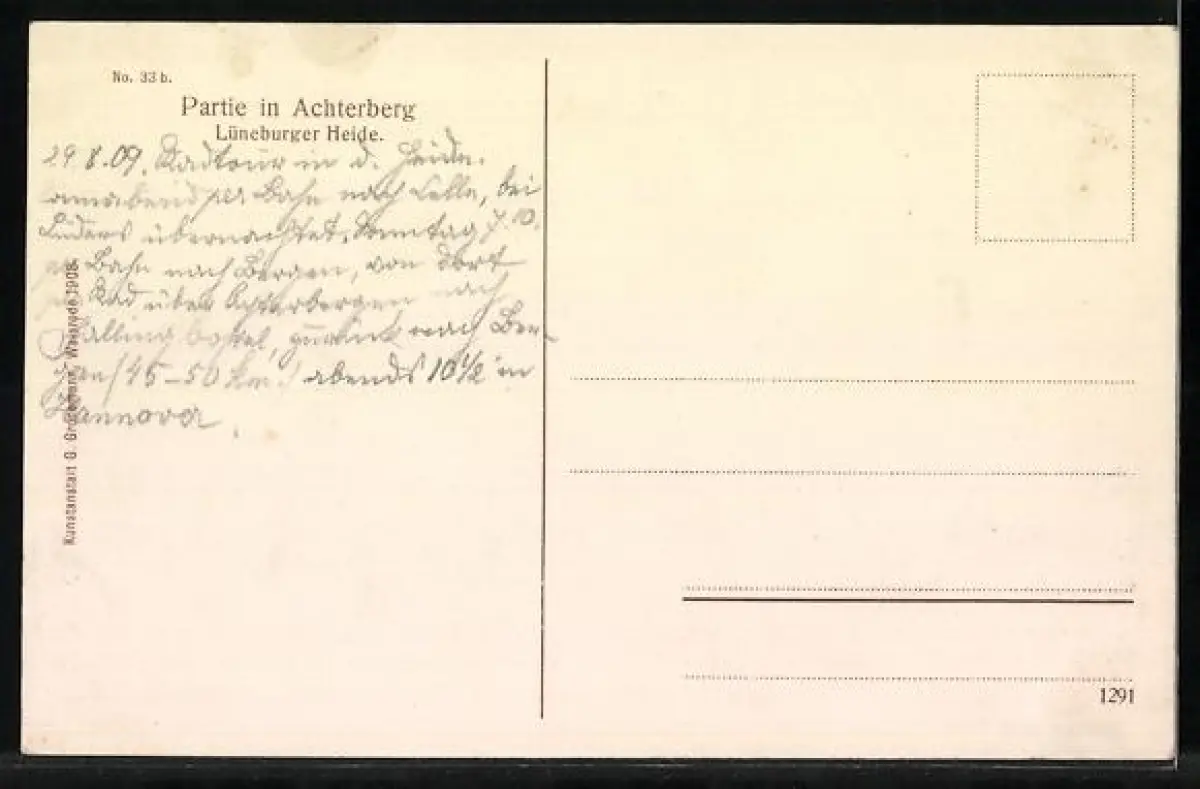 No. 33 b.
Partie in Achterberg
Lüneburger Heide.
29 8.09. Radtour in d. Heide.
Sonnabend per Bahn nach Celle, bei
Lüders übernachtet. Sonntag 7.10.
Bahn nach Bergen, von dort
Rad über nach
Fallingbostel, zurück nach Ber-
gen (45-50 km.) abends 10½ in
Hannover.
Kunstanstalt G. Walsrode 1908.
1291